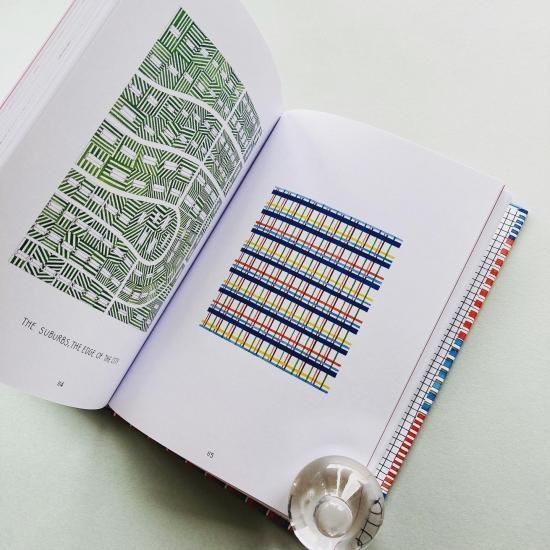 THE SUBURBS, THE EDGE OF THE CITY
114
115